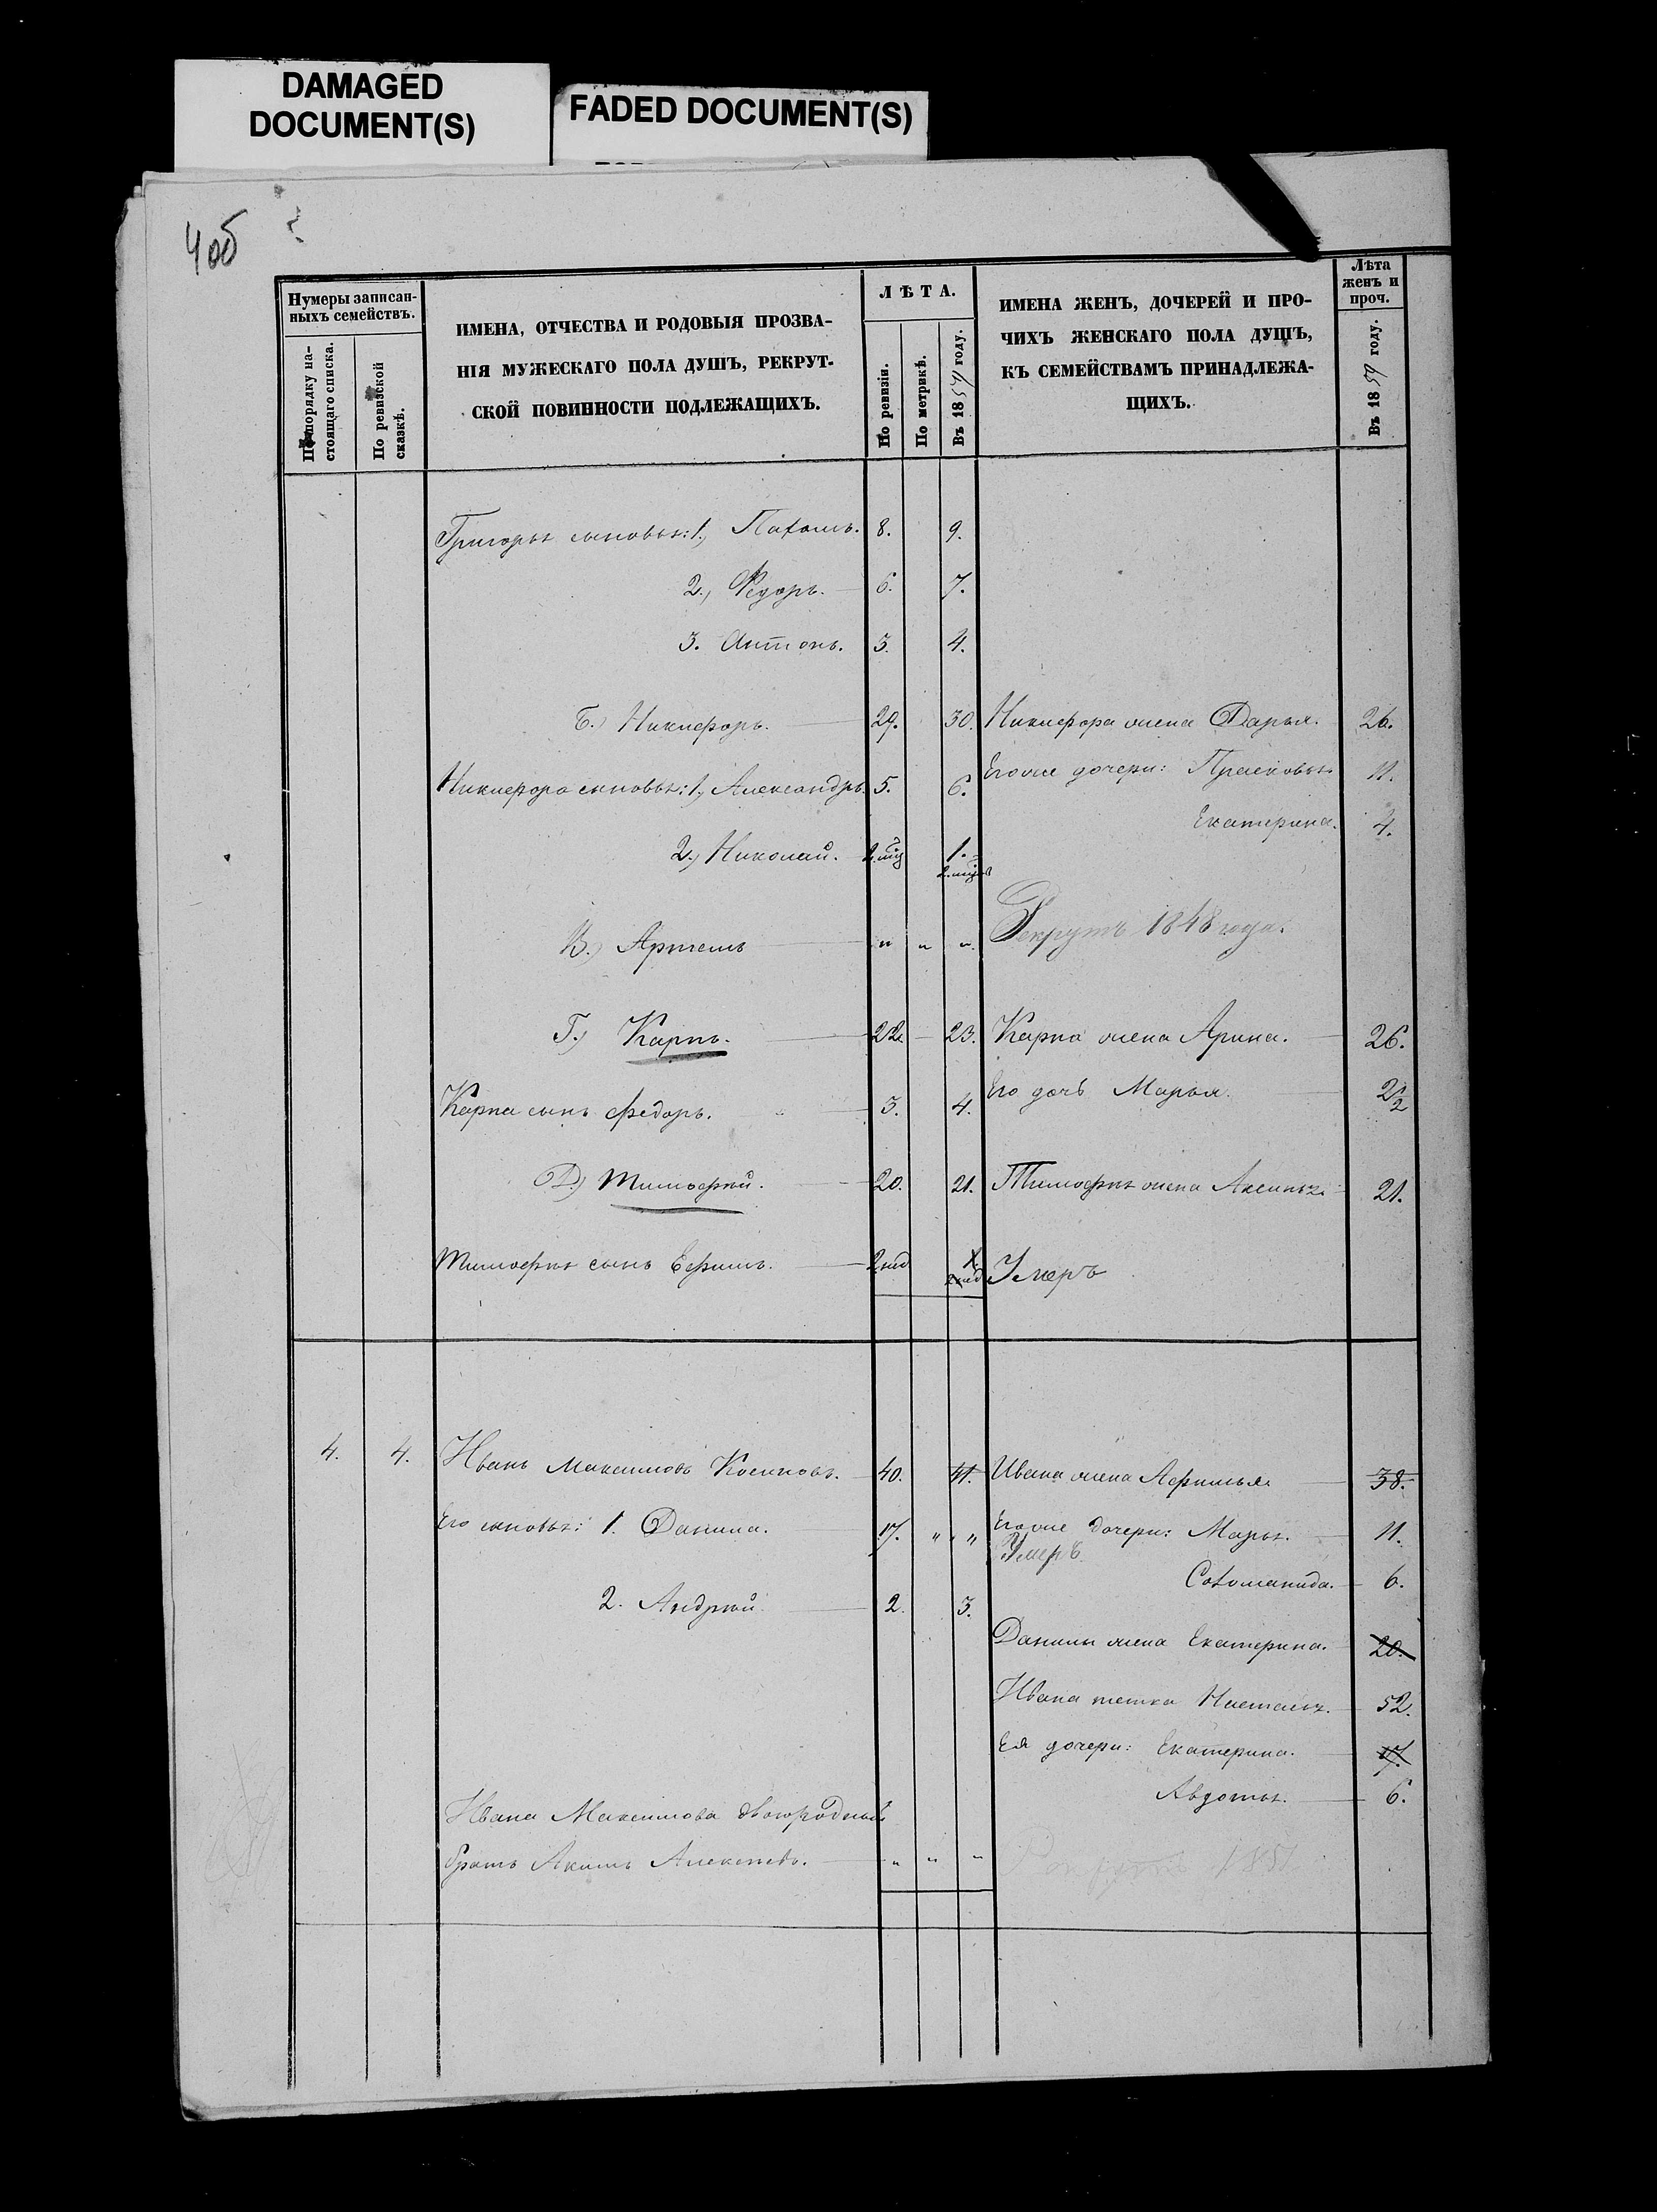 DAMAGED
DOCUMENT(S)
FADED DOCUMENT(S)
4об
Нумеры записан-
ныхъ семействъ.
По порядку на-
стоящаго списка.
По ревизской
сказкѣ.
ИМЕНА, ОТЧЕСТВА И РОДОВЫЯ ПРОЗВА-
НІЯ МУЖЕСКАГО ПОЛА ДУШЪ, РЕКРУТ-
СКОЙ ПОВИННОСТИ ПОДЛЕЖАЩИХЪ.
ЛѢТА.
По ревизіи.
По метрикѣ.
Въ 18 году.
ИМЕНА ЖЕНЪ, ДОЧЕРЕЙ И ПРО-
ЧИХЪ ЖЕНСКАГО ПОЛА ДУШЪ,
КЪ СЕМЕЙСТВАМЪ ПРИНАДЛЕЖА-
ЩИХЪ.
Лѣта
женъ и
проч.
Въ 18 году.
Григорья сыновья: 1, Пахомъ. 8. 9.
2., Ѳедоръ. 6. 7.
3. Антонъ. 3. 4.
Б.) Никифоръ. 29. 30. Никифора жена Дарья. 26.
Никифора сыновья: 1, Александръ. 5. 6. Его же дочери: Прасковья 11.
Екатерина. 4.
2.) Николай. 1.
В.) Артемъ " " " Рекрутъ 1848 года.
Г.) Карпъ. 22. 23. Карпа жена Арина. 26.
Карпа сынъ Федоръ. 3. 4. Его дочь Марья. 2½
Д.) Тимофей. 20. 21. Тимофея жена Аксинья. 21.
Тимофея сынъ Ефимъ. 2 нед Умеръ
4. 4. Иванъ Максимовъ 40. 41. Ивана жена Афимья. 38.
Его сыновья: 1. Данила. 17. " " Его же дочери: Марья. 11.
Умеръ
Соломанида. 6.
2. Андрей. 2. 3.
Данилы жена Екатерина. 20.
Ивана тетка Настасья. 52.
Ея дочери: Екатерина. 17.
Авдотья. 6.
Ивана Максимова двоюродный
братъ Акимъ Алексеевъ. " " "